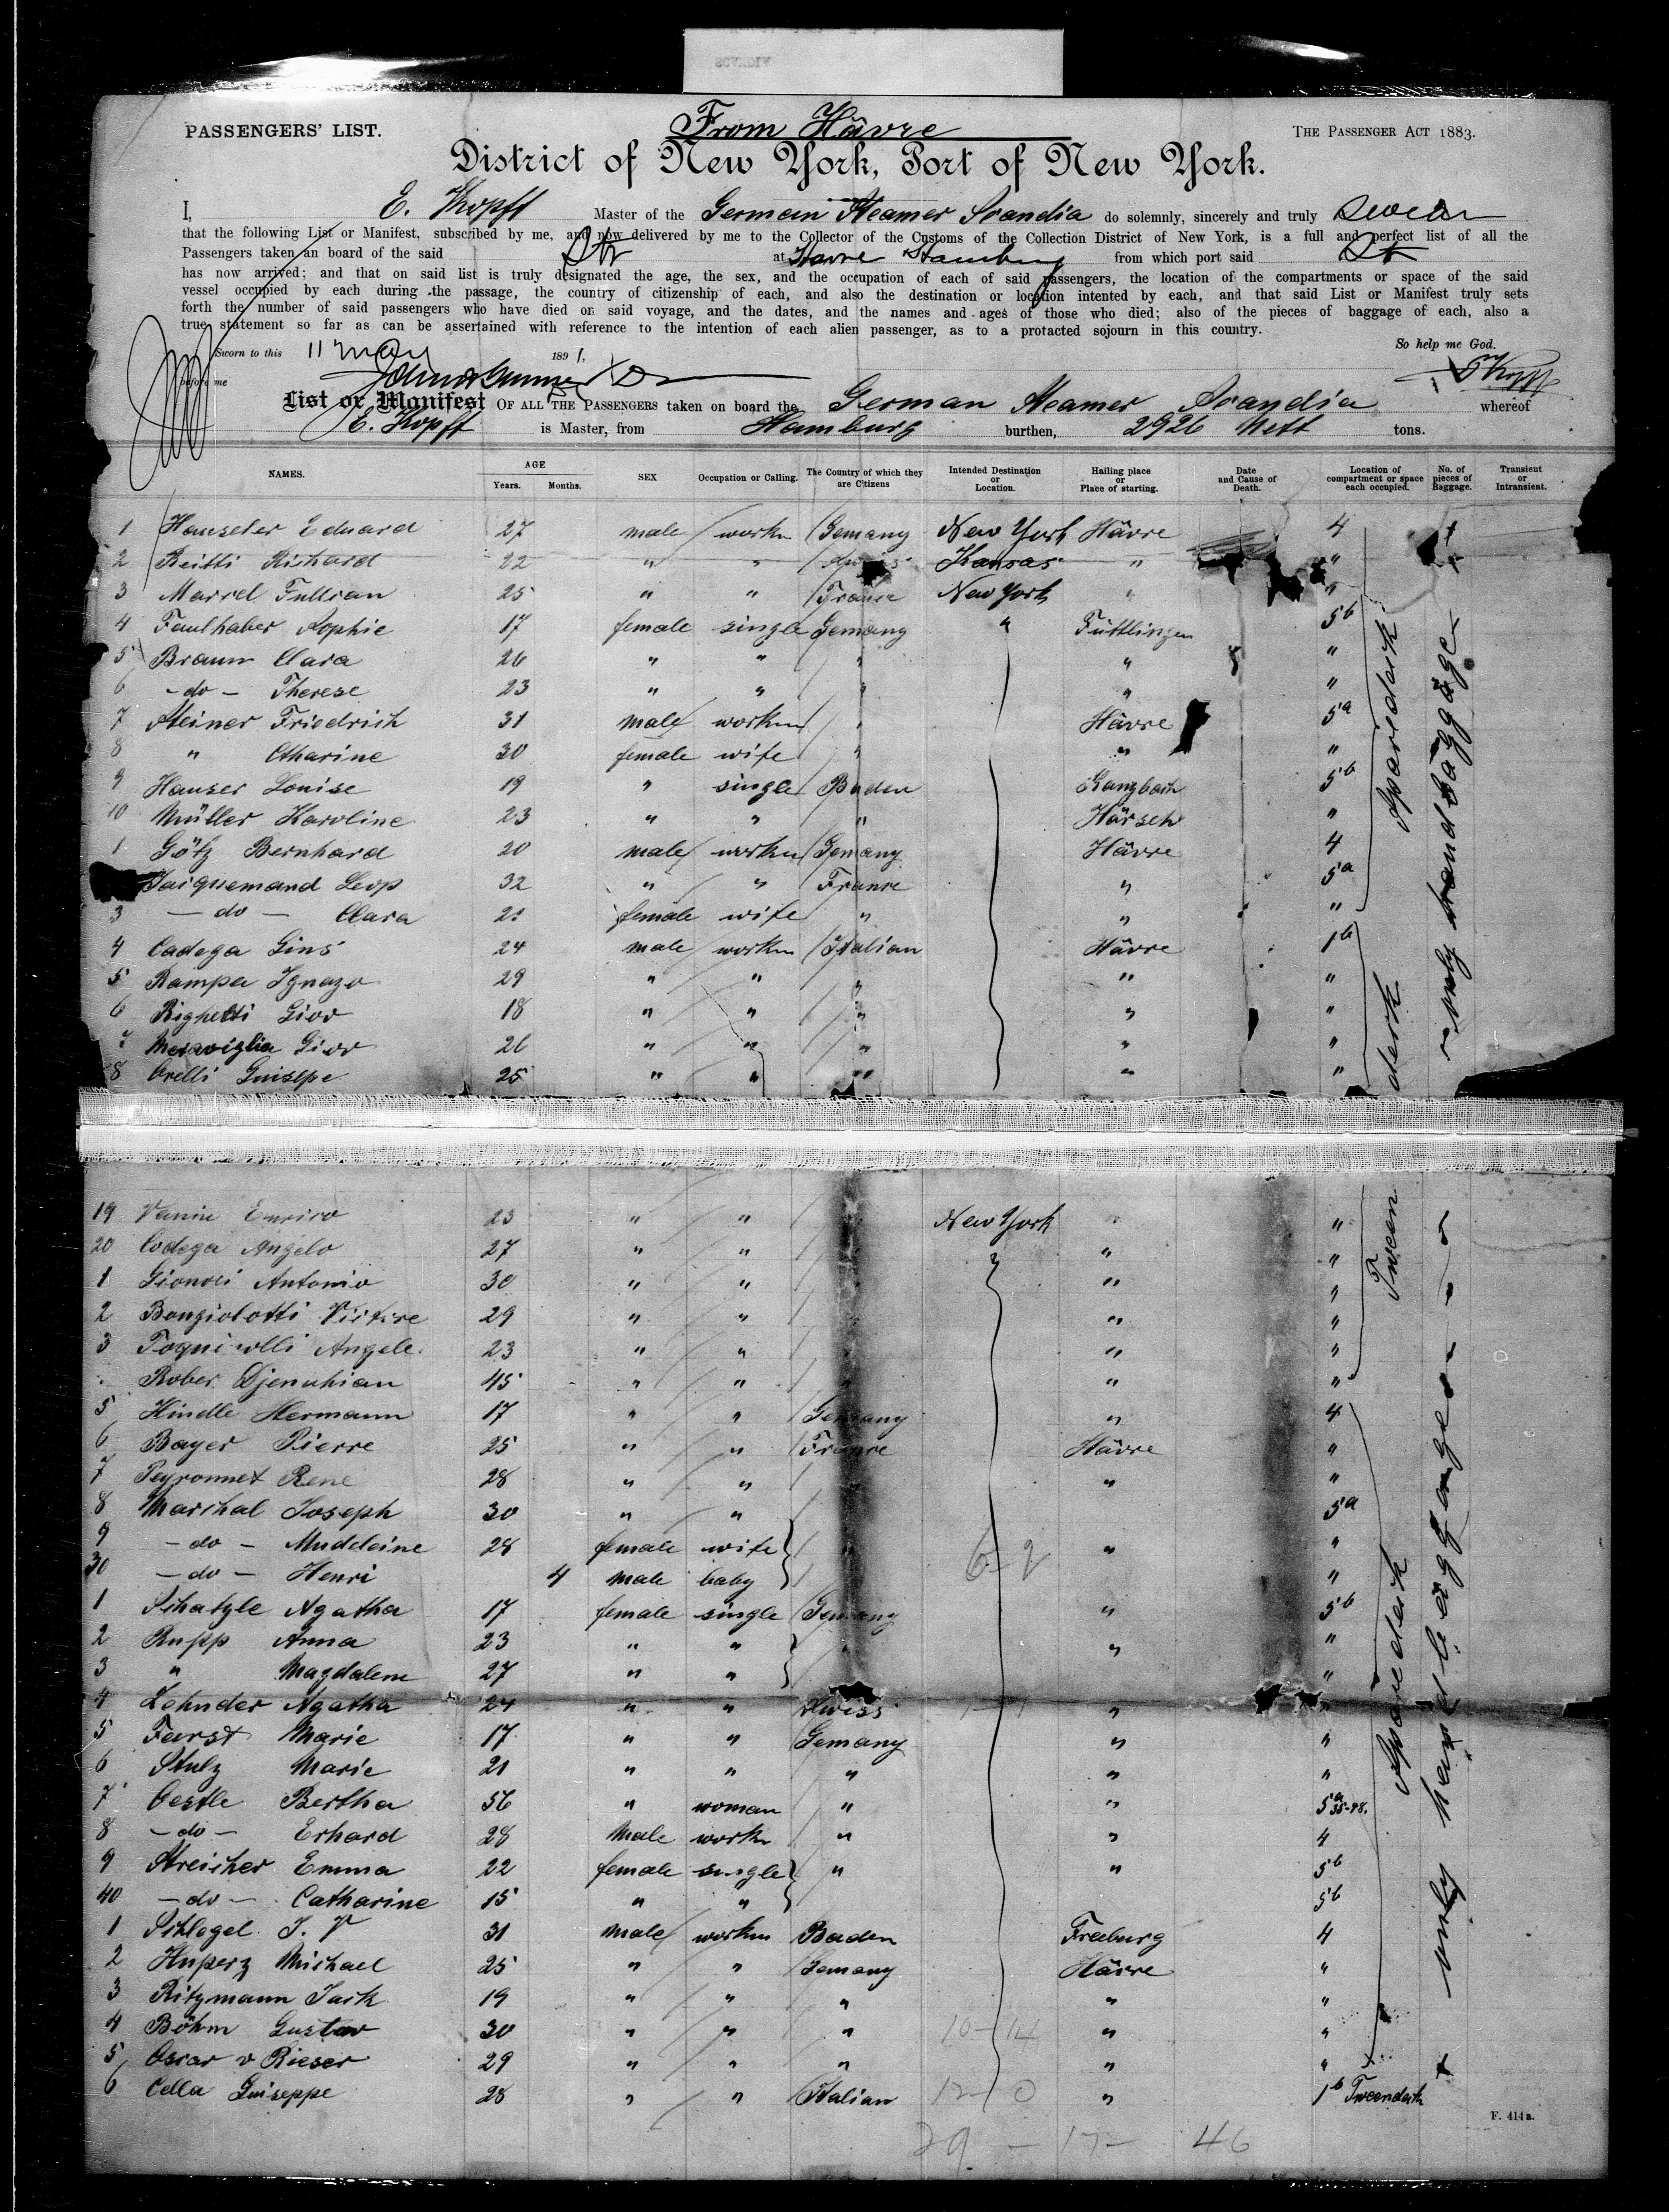 PASSENGERS' LIST.
From Hâvre
THE PASSENGER ACT 1883.
District of New York, Port of New York.
I, E. Kopff Master of the German Steamer Scandia do solemnly, sincerely and truly swear
that the following List or Manifest, subscribed by me, and now delivered by me to the Collector of the Customs of the Collection District of New York, is a full and perfect list of all the
Passengers taken an board of the said Str at Havre Hamburg from which port said Str
has now arrived; and that on said list is truly designated the age, the sex, and the occupation of each of said passengers, the location of the compartments or space of the said
vessel occupied by each during the passage, the country of citizenship of each, and also the destination or location intented by each, and that said List or Manifest truly sets
forth the number of said passengers who have died on said voyage, and the dates, and the names and ages of those who died; also of the pieces of baggage of each, also a
true statement so far as can be assertained with reference to the intention of each alien passenger, as to a protacted sojourn in this country.
So help me God.
Sworn to this 11 May 1891.
before me
E Kopff
List or Manifest OF ALL THE PASSENGERS taken on board the German Steamer Scandia whereof
E. Kopff is Master, from Hamburg burthen, 2926 Nett tons.
NAMES. AGE Years. Months. SEX Occupation or Calling. The Country of which they are Citizens Intended Destination or Location. Hailing place or Place of starting. Date and Cause of Death. Location of compartment or space each occupied. No. of pieces of Baggage. Transient or Intransient.
1 Hauseter Eduard 27 male workm Gemany New York Hâvre 4
2 Reitti Richard 22 " " Swiss Kansas " "
3 Marcel Fultran 25 " " France New York " "
4 Faulhaber Sophie 17 female single Gemany " Tuttlingen 5b
5 Braun Clara 26 " " " " "
6 - do - Therese 23 " " " " "
7 Steiner Friedrich 31 male workm " Hâvre 5a
8 " Catharine 30 female wife " " "
9 Hauser Louise 19 " single Baden Ganzbach 5b
10 Müller Karoline 23 " " " Härsch "
1 Götz Bernhard 20 male workm Gemany Hâvre 4
Jaiquemand Leop 32 " " France " 5a
3 - do - Clara 21 female wife " " "
4 Cadega Gins 24 male workm Italian Hâvre 1b
5 Rampa Ignazo 29 " " " " "
6 Righetti Giov 18 " " " " "
7 Meraviglia Giov 26 " " " " "
8 Orelli Guisepe 25 " " " " "
Sparedeck
only handbaggage
19 Vanin Enrico 23 " " New York " "
20 Codega Angelo 27 " " " "
1 Gionori Antonio 30 " " " "
2 Bongiolotti Vittore 29 " " " "
3 Togniolli Angele 23 " " " "
Rober Djenuhian 45 " " " "
5 Hindle Hermann 17 " " Gemany " 4
6 Bayer Pierre 25 " " France Hâvre "
7 Peyronnet Rene 28 " " " "
8 Marchal Joseph 30 " " 5a
9 - do - Madeleine 28 female wife " " "
30 - do - Henri 4 male baby "
1 Schatzle Agatha 17 female single Gemany " 5b
2 Rupp Anna 23 " " " "
3 " Magdalene 27 " " "
4 Zehnder Agatha 24 " " Swiss " "
5 Farst Marie 17 " " Gemany " "
6 Stulz Marie 21 " " " " "
7 Oestle Bertha 56 " woman " " 5a 35-48.
8 - do - Erhard 28 Male workm " " 4
9 Streicher Emma 22 female single " " 5b
40 - do - Catharine 15 " " 5b
1 Schlogel J. V 31 male workm Baden Freeburg 4
2 Huperz Michael 25 " " Gemany Hâvre "
3 Ritzmann Jack 19 " " " " "
4 Böhm Gustav 30 " " " " "
5 Oscar v Rieser 29 " " " " "
6 Cella Guiseppe 28 " " Italian " 1b Tweendeck
Tween deck
Sparedeck
only handbaggage
6-2
10-14
12-0
29 - 17 - 46
F. 414a.